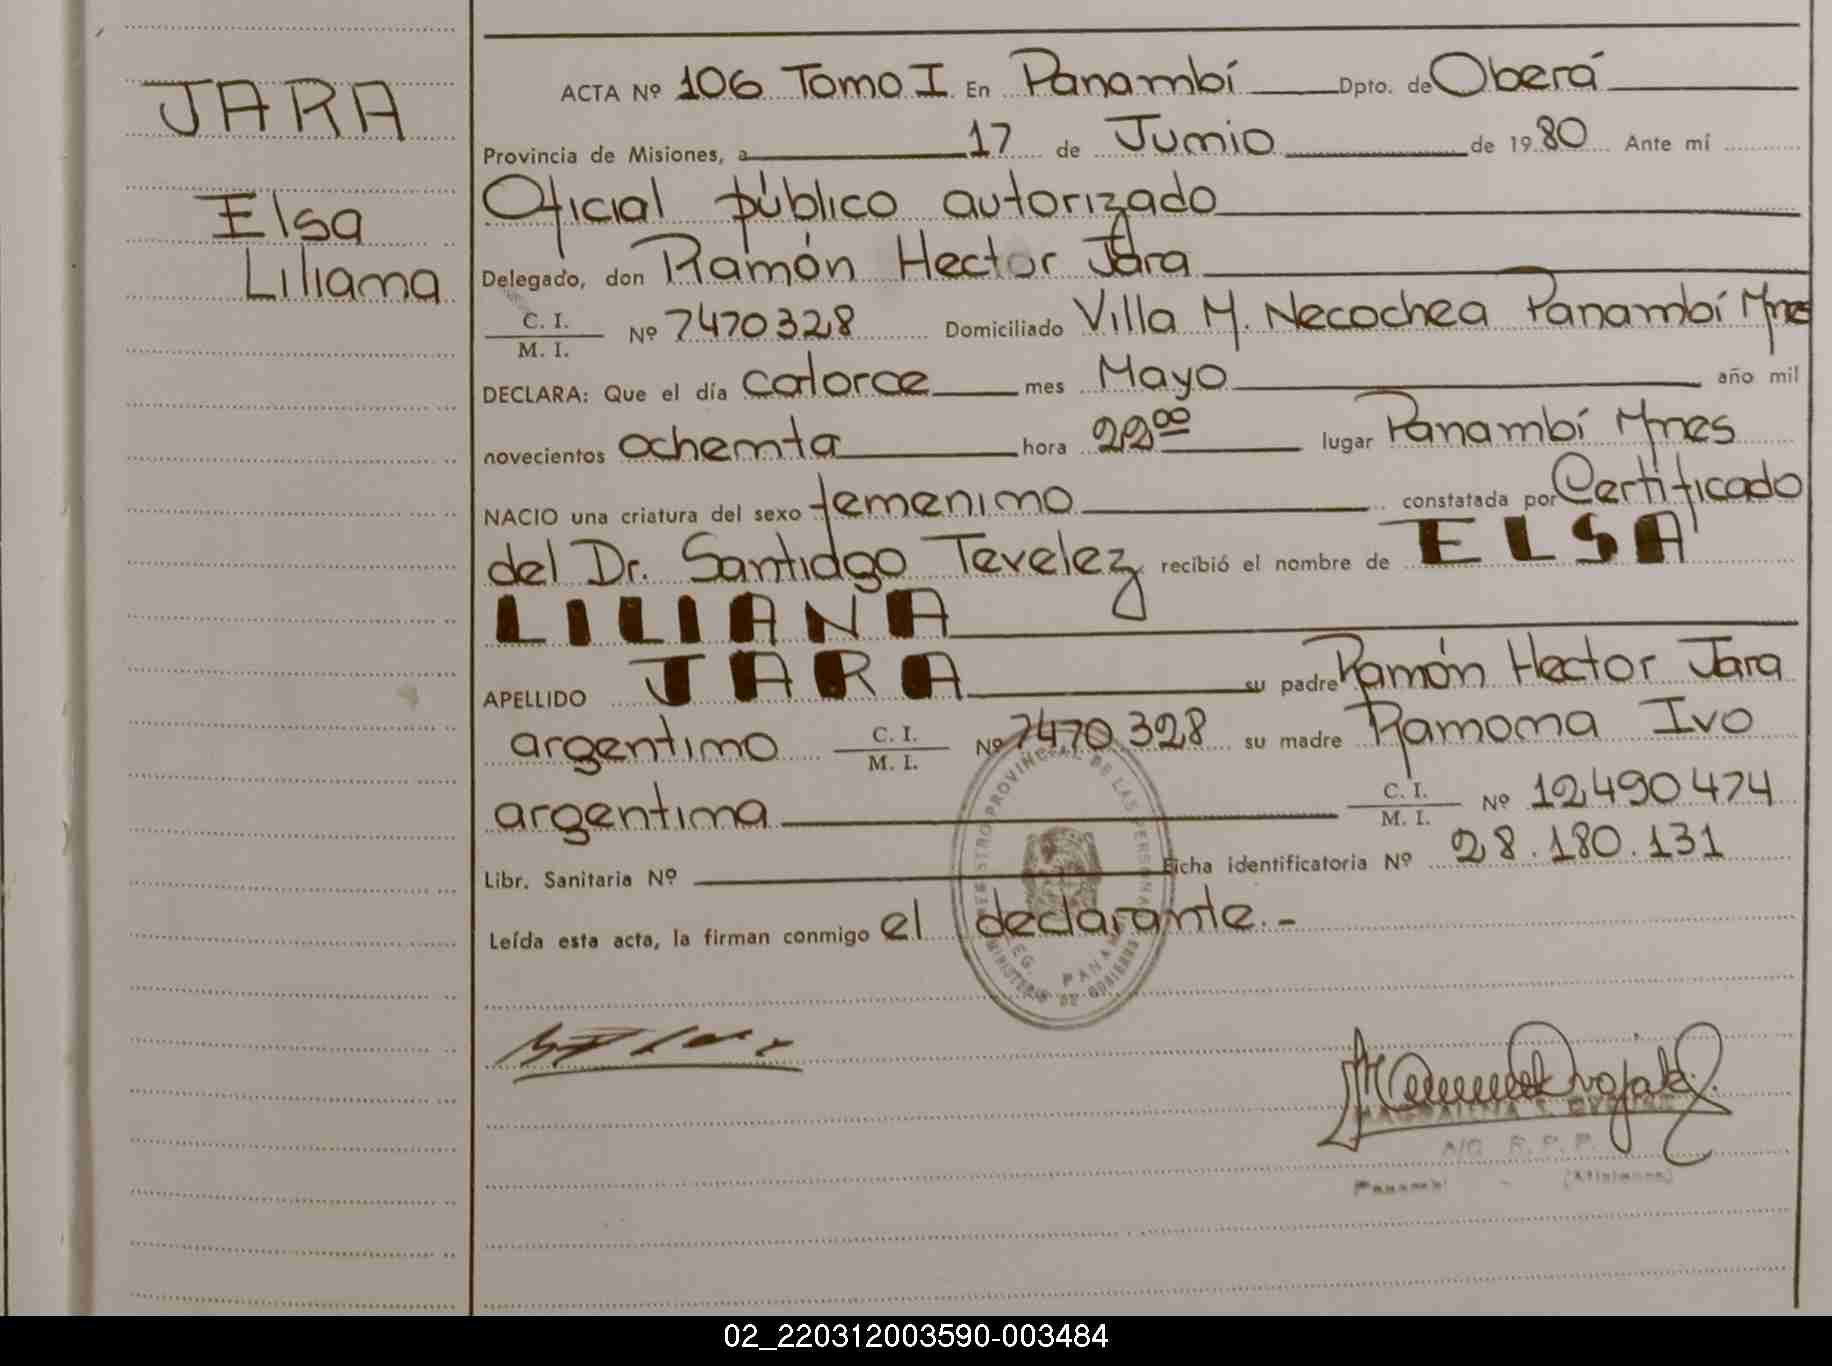 JARA
Elsa
Liliana
ACTA Nº 106 Tomo I En Panambí Dpto. de Oberá
Provincia de Misiones, a 17 de Junio de 1980 Ante mí
Oficial público autorizado
Delegado, don Ramón Hector Jara
C. I.
M. I. Nº 7470328 Domiciliado Villa M. Necochea Panambí Mnes
DECLARA: Que el día catorce mes Mayo año mil
novecientos ochenta hora 22 00 lugar Panambí Mnes
NACIO una criatura del sexo femenino constatada por Certificado
del Dr. Santiago Tevelez recibió el nombre de ELSA
LILIANA
APELLIDO JARA su padre Ramón Hector Jara
argentino C. I.
M. I. Nº 7470.328 su madre Ramona Ivo
argentina C. I.
M. I. Nº 12490474
Libr. Sanitaria Nº Ficha identificatoria Nº 28.180.131
Leída esta acta, la firman conmigo el declarante.-
REGISTRO PROVINCIAL DE LAS PERSONAS
MINISTERIO DE GOBIERNO
A/C R. P. P.
Panambí (Misiones)
02_220312003590-003484